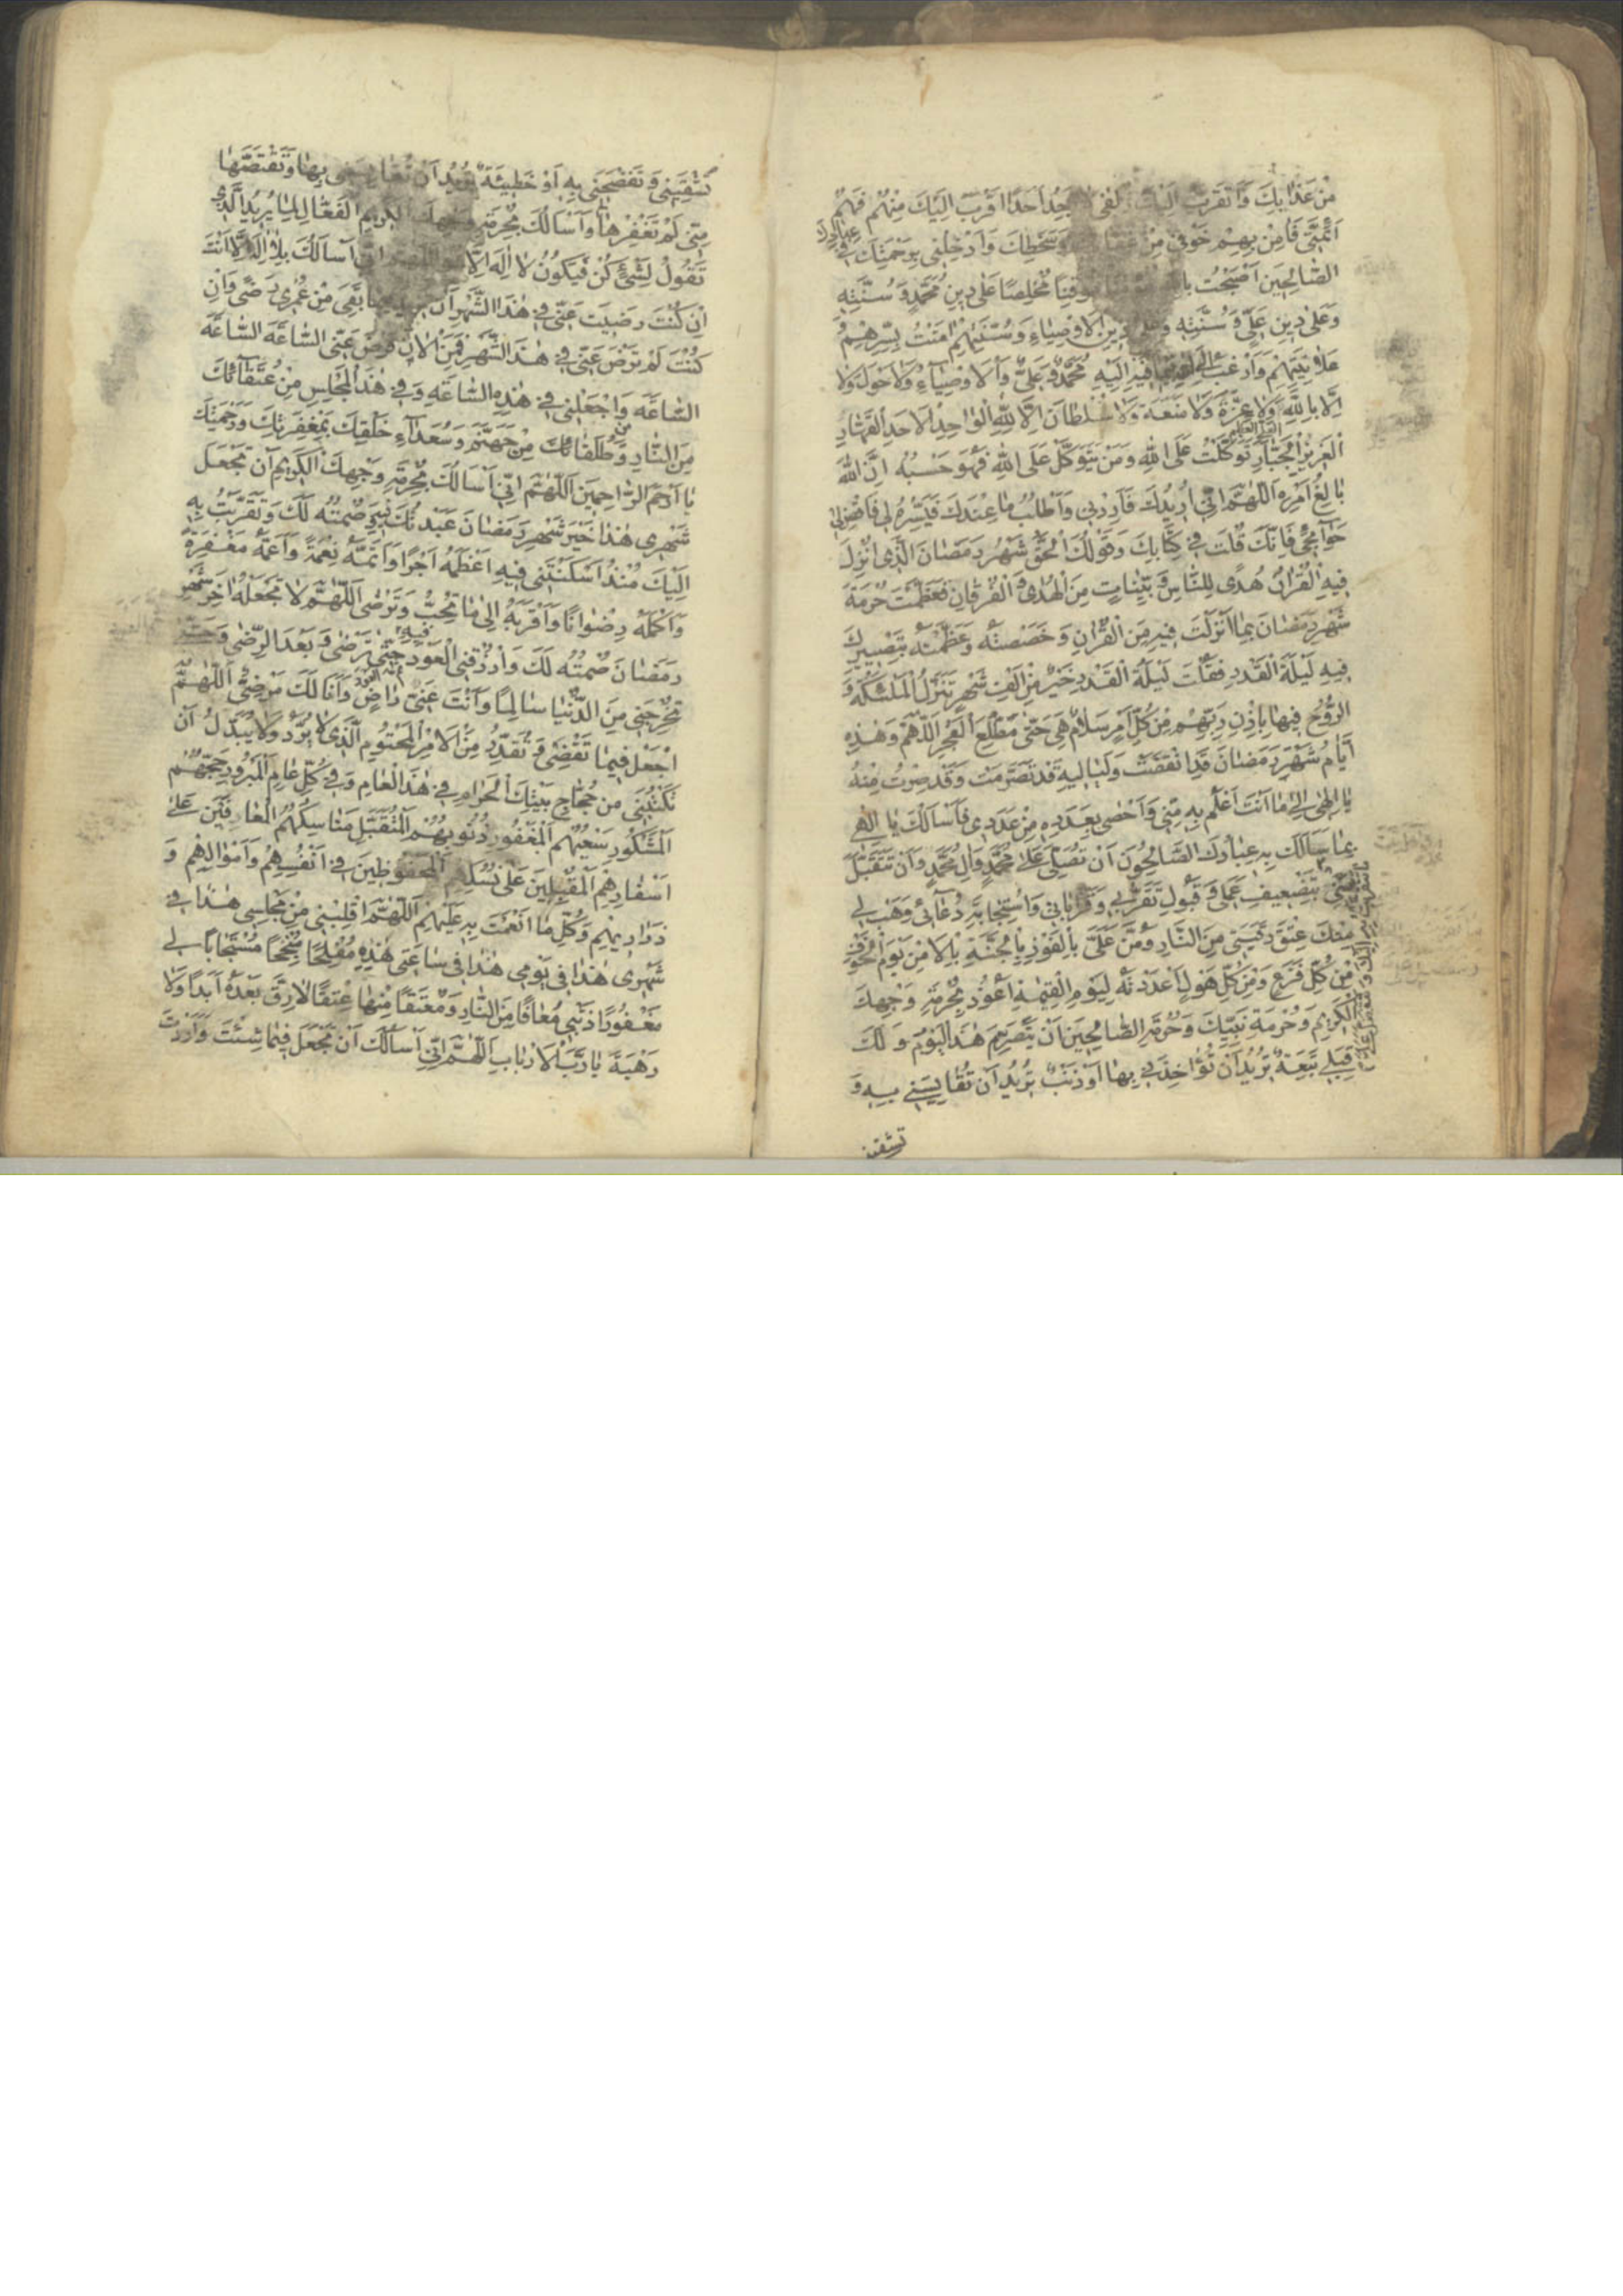 مِنْ عَذَابِكَ وَاَتَقَرَّبُ اِلَيْكَ لَا اَجِدُ اَحَدًا اَقْرَبَ اِلَيْكَ مِنْهُمْ فَهُمْ
اَئِمَّتِي فَآمِنْ بِهِمْ خَوْفِي مِنْ وَسَخَطِكَ وَاَدْخِلْنِي بِرَحْمَتِكَ فِي عِبَادِكَ
الصَّالِحِينَ اَصْبَحْتُ مُوقِنًا مُخْلِصًا عَلٰى دِينِ مُحَمَّدٍ وَسُنَّتِهِ
وَعَلٰى دِينِ عَلِيٍّ وَسُنَّتِهِ وَعَلٰى دِينِ الْاَوْصِيَاءِ وَسُنَّتِهِمْ اٰمَنْتُ بِسِرِّهِمْ وَ
عَلَانِيَتِهِمْ وَاَرْغَبُ فِيهِ اِلَيْهِ مُحَمَّدٌ وَعَلِيٌّ وَالْاَوْصِيَاءُ وَلَا حَوْلَ وَلَا
اِلَّا بِاللّٰهِ وَلَا عِزَّةَ وَلَا مَنَعَةَ وَلَا سُلْطَانَ اِلَّا لِلّٰهِ الْوَاحِدِ الْاَحَدِ الْقَهَّارِ
الْعَزِيزِ الْجَبَّارِ تَوَكَّلْتُ عَلَى اللّٰهِ وَمَنْ يَتَوَكَّلْ عَلَى اللّٰهِ فَهُوَ حَسْبُهُ اِنَّ اللّٰهَ
بَالِغُ اَمْرِهِ اَللّٰهُمَّ اِنِّي اُرِيدُكَ فَاَرِدْنِي وَاَطْلُبُ مَا عِنْدَكَ فَيَسِّرْهُ لِي فَاقْضِ لِي
حَوَآئِجِي فَاِنَّكَ قُلْتَ فِي كِتَابِكَ وَقَوْلُكَ الْحَقُّ شَهْرُ رَمَضَانَ الَّذِي اُنْزِلَ
فِيهِ الْقُرْاٰنُ هُدًى لِلنَّاسِ وَبَيِّنَاتٍ مِنَ الْهُدٰى وَالْفُرْقَانِ فَعَظَّمْتَ حُرْمَةَ
شَهْرِ رَمَضَانَ بِمَا اَنْزَلْتَ فِيهِ مِنَ الْقُرْاٰنِ وَخَصَصْتَهُ وَعَظَّمْتَهُ بِتَصْيِيرِكَ
فِيهِ لَيْلَةَ الْقَدْرِ فَقُلْتَ لَيْلَةُ الْقَدْرِ خَيْرٌ مِنْ اَلْفِ شَهْرٍ تَنَزَّلُ الْمَلٰئِكَةُ وَ
الرُّوحُ فِيهَا بِاِذْنِ رَبِّهِمْ مِنْ كُلِّ اَمْرٍ سَلَامٌ هِيَ حَتّٰى مَطْلَعِ الْفَجْرِ اَللّٰهُمَّ وَهٰذِهِ
اَيَّامُ شَهْرِ رَمَضَانَ قَدِ انْقَضَتْ وَلَيَالِيهِ قَدْ تَصَرَّمَتْ وَقَدْ صِرْتُ مِنْهُ
يَا اِلٰهِي اِلٰى مَا اَنْتَ اَعْلَمُ بِهِ مِنِّي وَاَحْصٰى بِعَدَدِهِ مِنْ عَدَدِي فَاَسْاَلُكَ يَا اِلٰهِي
بِمَا سَاَلَكَ بِهِ عِبَادُكَ الصَّالِحُونَ اَنْ تُصَلِّيَ عَلٰى مُحَمَّدٍ وَاٰلِ مُحَمَّدٍ وَاَنْ تَتَقَبَّلَ
مِنِّي بِتَضْعِيفِ عَمَلِي وَقَبُولِ تَقَرُّبِي وَقُرْبَانِي وَاسْتِجَابَةِ دُعَآئِي وَهَبْ لِي
مِنْكَ عِتْقَ رَقَبَتِي مِنَ النَّارِ وَمُنَّ عَلَيَّ بِالْفَوْزِ بِالْجَنَّةِ بِالْاَمْنِ يَوْمَ الْخَوْفِ
مِنْ كُلِّ فَزَعٍ وَمِنْ كُلِّ هَوْلٍ اَعْدَدْتَهُ لِيَوْمِ الْقِيٰمَةِ اَعُوذُ بِحُرْمَةِ وَجْهِكَ
الْكَرِيمِ وَحُرْمَةِ نَبِيِّكَ وَحُرْمَةِ الصَّالِحِينَ اَنْ يَتَصَرَّمَ هٰذَا الْيَوْمُ وَلَكَ
قِبَلِي تَبِعَةٌ تُرِيدُ اَنْ تُؤَاخِذَنِي بِهَا اَوْ ذَنْبٌ تُرِيدُ اَنْ تُقَايِسَنِي بِهِ وَ
تشقيني
تُشْقِيَنِي وَتَفْضَحَنِي بِهِ اَوْ خَطِيئَةٌ تُرِيدُ اَنْ تُقَايِسَنِي بِهَا وَتَقْتَصَّهَا
مِنِّي لَمْ تَغْفِرْهَا وَاَسْاَلُكَ بِحُرْمَةِ وَجْهِكَ الْكَرِيمِ الْفَعَّالِ لِمَا يُرِيدُ الَّذِي
تَقُولُ لِشَيْءٍ كُنْ فَيَكُونُ لَا اِلٰهَ اِلَّا اِنِّي اَسْاَلُكَ بِلَا اِلٰهَ اِلَّا اَنْتَ
اِنْ كُنْتَ رَضِيتَ عَنِّي فِي هٰذَا الشَّهْرِ اَنْ بَقِيَ مِنْ عُمْرِي رِضًى وَاِنْ
كُنْتَ لَمْ تَرْضَ عَنِّي فِي هٰذَا الشَّهْرِ فَمِنَ الْاٰنَ فَارْضَ عَنِّي السَّاعَةَ السَّاعَةَ
السَّاعَةَ وَاجْعَلْنِي فِي هٰذِهِ السَّاعَةِ وَفِي هٰذَا الْمَجْلِسِ مِنْ عُتَقَآئِكَ
مِنَ النَّارِ وَطُلَقَائِكَ مِنْ جَهَنَّمَ وَسُعَدَآءِ خَلْقِكَ بِمَغْفِرَتِكَ وَرَحْمَتِكَ
يَا اَرْحَمَ الرَّاحِمِينَ اَللّٰهُمَّ اِنِّي اَسْاَلُكَ بِحُرْمَةِ وَجْهِكَ الْكَرِيمِ اَنْ تَجْعَلَ
شَهْرِي هٰذَا خَيْرَ شَهْرِ رَمَضَانَ عَبَدْتُكَ فِيهِ وَصُمْتُهُ لَكَ وَتَقَرَّبْتُ بِهِ
اِلَيْكَ مُنْذُ اَسْكَنْتَنِي فِيهِ اَعْظَمَهُ اَجْرًا وَاَتَمَّهُ نِعْمَةً وَاَعَمَّهُ مَغْفِرَةً
وَاَكْمَلَهُ رِضْوَانًا وَاَقْرَبَهُ اِلٰى مَا تُحِبُّ وَتَرْضٰى اَللّٰهُمَّ لَا تَجْعَلْهُ اٰخِرَ شَهْرِ
رَمَضَانَ صُمْتُهُ لَكَ وَارْزُقْنِي الْعَوْدَ فِيهِ حَتّٰى تَرْضٰى وَبَعْدَ الرِّضٰى وَحَتّٰى
تُخْرِجَنِي مِنَ الدُّنْيَا سَالِمًا وَاَنْتَ عَنِّي رَاضٍ وَاَنَا لَكَ مَرْضِيٌّ اَللّٰهُمَّ
اجْعَلْ فِيمَا تَقْضِي وَتُقَدِّرُ مِنَ الْاَمْرِ الْمَحْتُومِ الَّذِي لَا يُرَدُّ وَلَا يُبَدَّلُ اَنْ
تَكْتُبَنِي مِنْ حُجَّاجِ بَيْتِكَ الْحَرَامِ فِي هٰذَا الْعَامِ وَفِي كُلِّ عَامٍ الْمَبْرُورِ حَجُّهُمْ
الْمَشْكُورِ سَعْيُهُمْ الْمَغْفُورِ ذُنُوبُهُمْ الْمُتَقَبَّلِ مَنَاسِكُهُمْ الْمُعَافِينَ عَلٰى
اَسْفَارِهِمْ الْمُقْبِلِينَ عَلٰى نُسُكِهِمْ الْمَحْفُوظِينَ فِي اَنْفُسِهِمْ وَاَمْوَالِهِمْ وَ
ذَرَارِيهِمْ وَكُلِّ مَا اَنْعَمْتَ بِهِ عَلَيْهِمْ اَللّٰهُمَّ اقْلِبْنِي مِنْ مَجْلِسِي هٰذَا فِي
شَهْرِي هٰذَا فِي يَوْمِي هٰذَا فِي سَاعَتِي هٰذِهِ مُفْلِحًا مُنْجِحًا مُسْتَجَابًا لِي
مَغْفُورًا ذَنْبِي مُعَافًا مِنَ النَّارِ وَمُعْتَقًا مِنْهَا عِتْقًا لَا رِقَّ بَعْدَهُ اَبَدًا وَلَا
رَهْبَةَ يَا رَبَّ الْاَرْبَابِ اَللّٰهُمَّ اِنِّي اَسْاَلُكَ اَنْ تَجْعَلَ فِيمَا شِئْتَ وَاَرَدْتَ